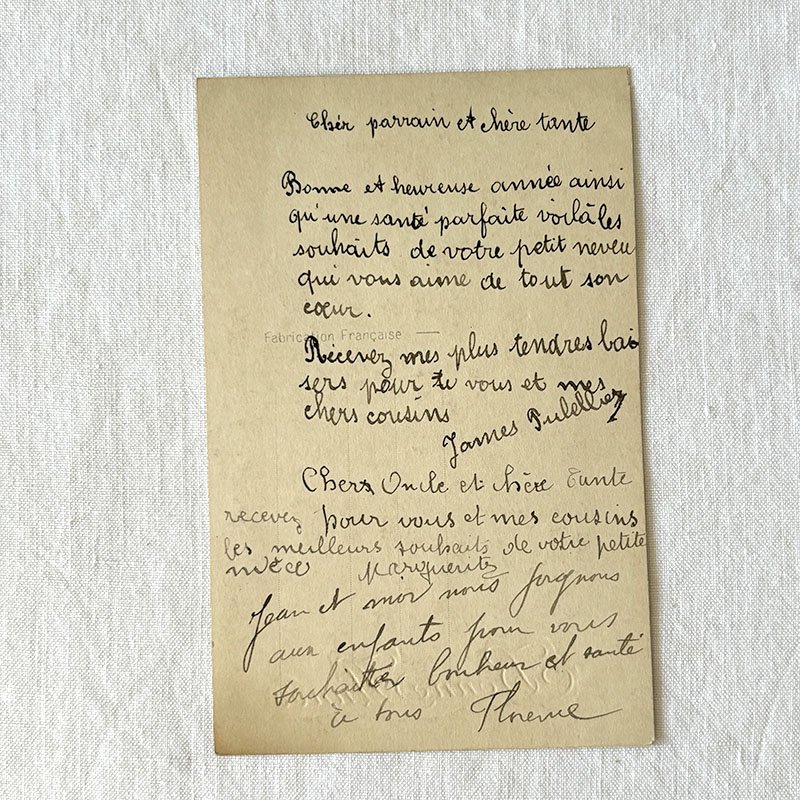 Chér parrain et chère tante
Bonne et heureuse année ainsi
qu'une santé parfaite voilà les
souhaits de votre petit neveu
qui vous aime de tout son
cœur.
Fabrication Française
Récevez mes plus tendres bai
sers pour vous et mes
chers cousins
James
Chers Oncle et chère Tante
recevez pour vous et mes cousins
les meilleurs souhaits de votre petite
nièce Marguerite
Jean et moi nous joignons
aux enfants pour vous
souhaitter bonheur et santé
à tous Florence